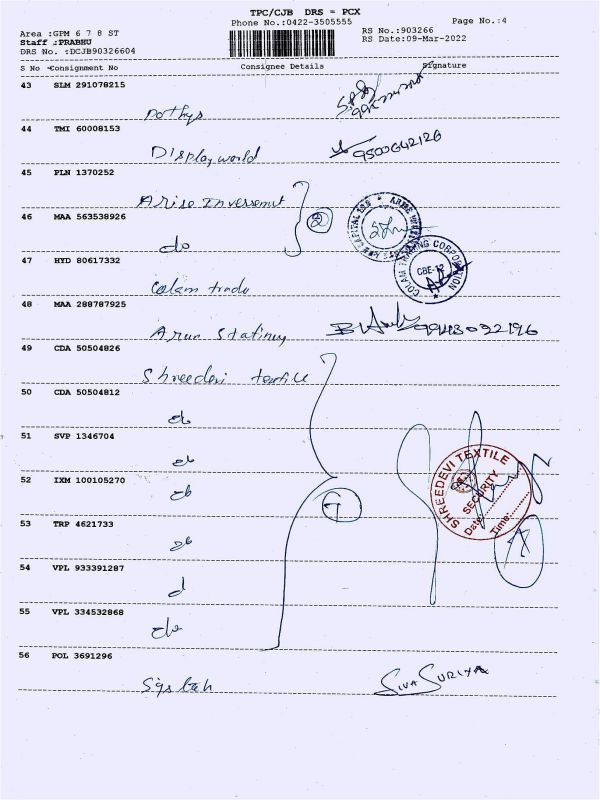 TPC/CJB DRS = PCX
Phone No.:0422-3505555
Page No.:4
Area :GPM 6 7 8 ST
RS No.:903266
Staff :PRABHU
RS Date:09-Mar-2022
DRS No. :DCJB90326604
S No Consignment No Consignee Details Signature
43 SLM 291078215
Pothys
44 TMI 60008153
Displayworld 9500642126
45 PLN 1370252
Arise Invessmut
46 MAA 563538926
do
2
47 HYD 80617332
Colam trade
COLAM TRADING CORPORATION
CBE-12
48 MAA 288787925
Arun Statinuy 9943032196
49 CDA 50504826
Shreedevi textile
50 CDA 50504812
do
51 SVP 1346704
do
52 IXM 100105270
do
7
SHREEDEVI TEXTILE
SECURITY
Date:
Time:
53 TRP 4621733
do
54 VPL 933391287
d
55 VPL 334532868
do
56 POL 3691296
SIVA SURIYA